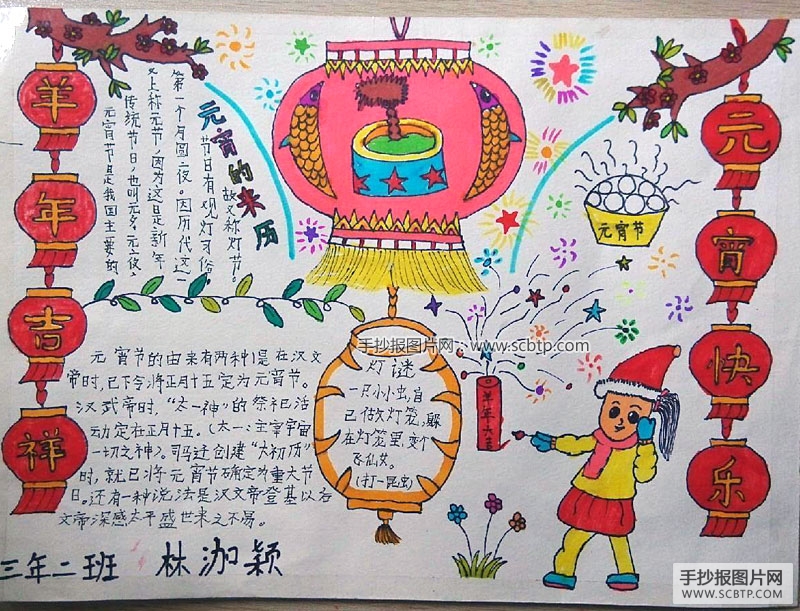 羊年吉祥
元宵快乐
元宵的来历
元宵节是我国主要的
传统节日,也叫元夕、元夜、
又上称元节,因为这是新年
第一个月圆夜。因历代这一
节日有观灯习俗,
故又称灯节。
元宵节
手抄报图片网 www.scbtp.com
元宵节的由来有两种1是在汉文
帝时,已下令将正月十五定为元宵节。
汉武帝时,“太一神”的祭祀活
动定在正月十五。(太一:主宰宇宙
一切之神)。司马迁创建“太初历”
时,就已将元宵节确定为重大节
日。还有一种说法是汉文帝登基以后
文帝深感太平盛世来之不易。
灯谜
一只小小虫,自
己做灯笼,躲
在灯笼里,变个
飞仙女。
(打一昆虫)
三年二班 林泇颖
手抄报图片网
WWW.SCBTP.COM